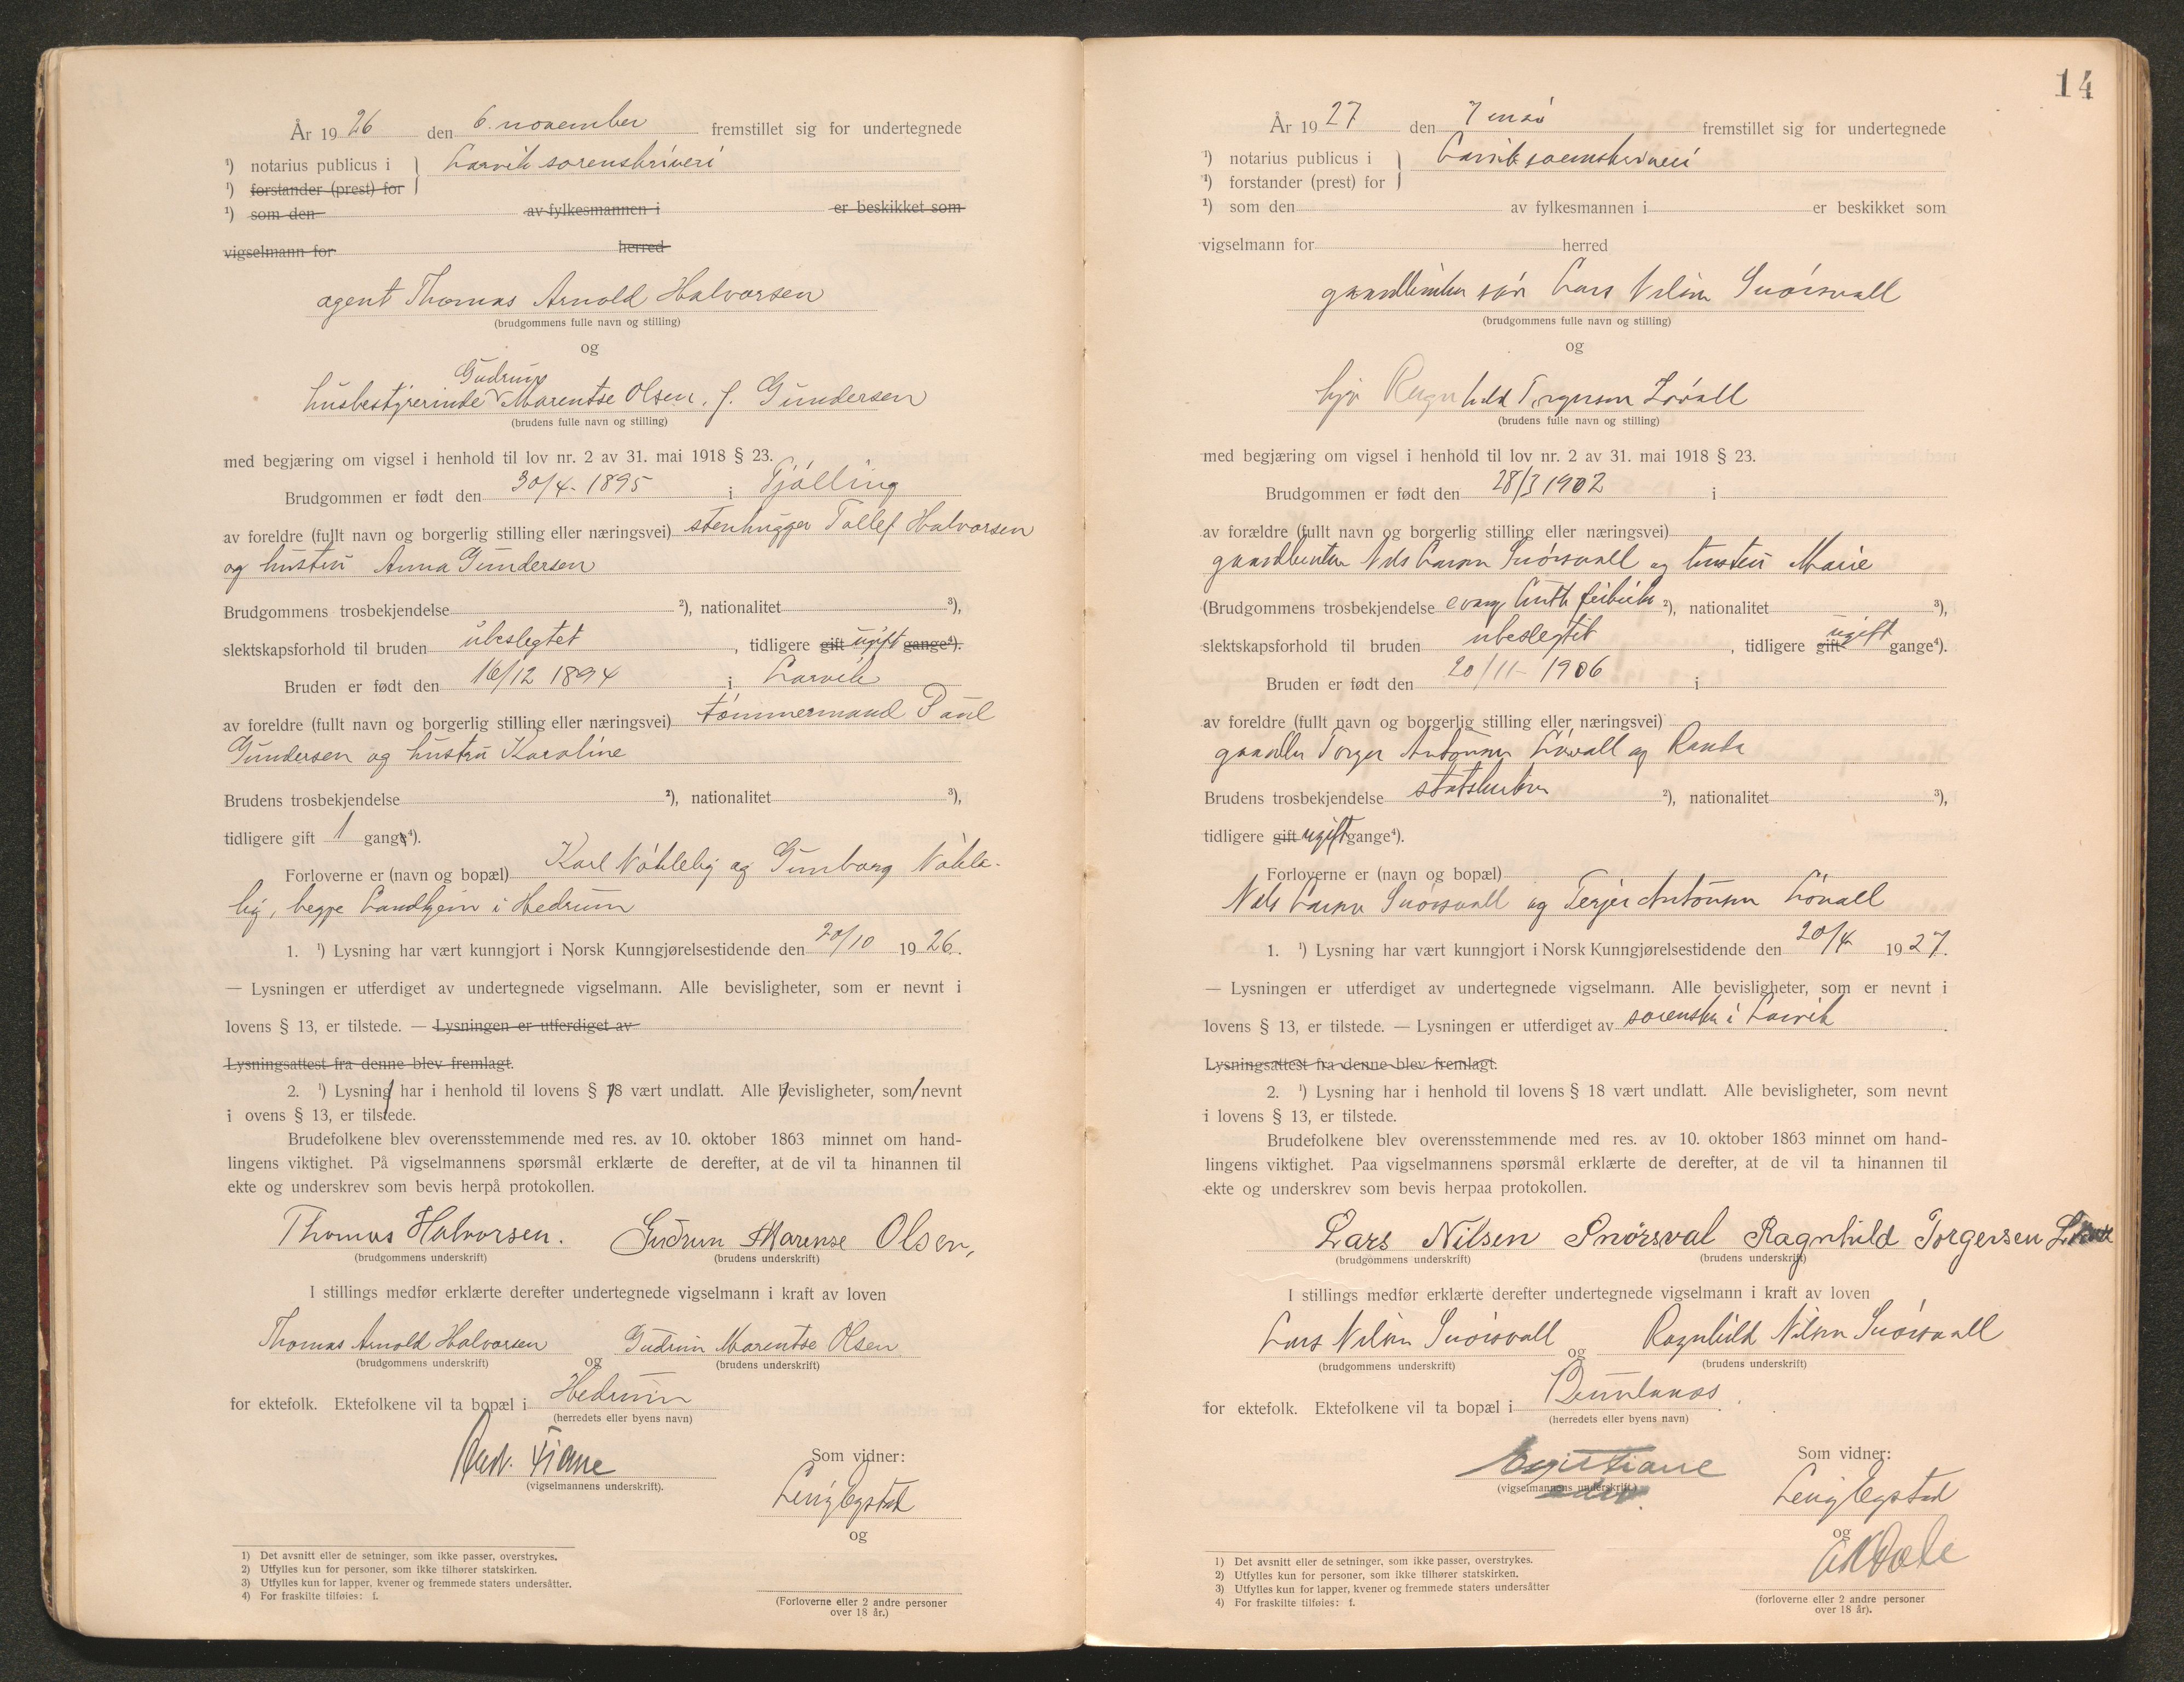 År 19 26 den 6. november fremstillet sig for undertegnede
¹) notarius publicus i } Larvik sorenskriveri
¹) forstander (prest) for
¹) som den av fylkesmannen i er beskikket som
vigselmann for herred
agent Thomas Arnold Halvorsen
(brudgommens fulle navn og stilling)
og
Gudrun
husbestyrerinde Marentse Olsen, f. Gundersen
(brudens fulle navn og stilling)
med begjæring om vigsel i henhold til lov nr. 2 av 31. mai 1918 § 23.
Brudgommen er født den 30/4- 1895 i Tjølling
av foreldre (fullt navn og borgerlig stilling eller næringsvei) stenhugger Tollef Halvorsen
og hustru Anna Gundersen
Brudgommens trosbekjendelse ²), nationalitet ³),
slektskapsforhold til bruden ubeslegtet, tidligere gift ugift gange⁴).
Bruden er født den 16/12 1894 i Larvik
av foreldre (fullt navn og borgerlig stilling eller næringsvei) tømmermand Paul
Gundersen og hustru Karoline
Brudens trosbekjendelse ²), nationalitet ³),
tidligere gift 1 gange⁴).
Forloverne er (navn og bopæl) Karl Nøkleby og Gunborg Nøkle-
by, begge Landheim i Hedrum
1. ¹) Lysning har vært kunngjort i Norsk Kunngjørelsestidende den 20/10 19 26.
— Lysningen er utferdiget av undertegnede vigselmann. Alle bevisligheter, som er nevnt i
lovens § 13, er tilstede. — Lysningen er utferdiget av
Lysningsattest fra denne blev fremlagt.
2. ¹) Lysning har i henhold til lovens § 18 vært undlatt. Alle bevisligheter, som nevnt
i ovens § 13, er tilstede.
Brudefolkene blev overensstemmende med res. av 10. oktober 1863 minnet om hand-
lingens viktighet. På vigselmannens spørsmål erklærte de derefter, at de vil ta hinannen til
ekte og underskrev som bevis herpå protokollen.
Thomas Halvorsen. Gudrun Marense Olsen,
(brudgommens underskrift) (brudens underskrift)
I stillings medfør erklærte derefter undertegnede vigselmann i kraft av loven
Thomas Arnold Halvorsen og Gudrun Marentse Olsen
(brudgommens underskrift) (brudens underskrift)
for ektefolk. Ektefolkene vil ta bopæl i Hedrum
(herredets eller byens navn)
Fiane
(vigselmannens underskrift).
Som vidner:
og
1) Det avsnitt eller de setninger, som ikke passer, overstrykes.
2) Utfylles kun for personer, som ikke tilhører statskirken.
3) Utfylles kun for lapper, kvener og fremmede staters undersåtter.
4) For fraskilte tilføies: f.
(Forloverne eller 2 andre personer
over 18 år.)
14
År 19 27 den 7 mai fremstillet sig for undertegnede
¹) notarius publicus i } Larvik sorenskriveri
¹) forstander (prest) for
¹) som den av fylkesmannen i er beskikket som
vigselmann for herred
gaardbruker søn Lars Nilsen Snørsvall
(brudgommens fulle navn og stilling)
og
Ragnhild Torgersen Løvall
(brudens fulle navn og stilling)
med begjæring om vigsel i henhold til lov nr. 2 av 31. mai 1918 § 23.
Brudgommen er født den 28/3 1902 i
av forældre (fullt navn og borgerlig stilling eller næringsvei)
gaardbruker Nils Larsen Snørsvall og hustru Marie
(Brudgommens trosbekjendelse evang luth frikirke ²), nationalitet ³),
slektskapsforhold til bruden ubeslegtet, tidligere gift ugift gange⁴).
Bruden er født den 20/11- 1906 i
av foreldre (fullt navn og borgerlig stilling eller næringsvei)
gaardbr Torger Antonsen Løvall og
Brudens trosbekjendelse statskirken ²), nationalitet ³),
tidligere gift ugift gange⁴).
Forloverne er (navn og bopæl)
Nils Larsen Snørsvall og Terjer Antonsen Løvall
1. ¹) Lysning har vært kunngjort i Norsk Kunngjørelsestidende den 20/4 19 27.
— Lysningen er utferdiget av undertegnede vigselmann. Alle bevisligheter, som er nevnt i
lovens § 13, er tilstede. — Lysningen er utferdiget av sorenskr i Larvik.
Lysningsattest fra denne blev fremlagt.
2. ¹) Lysning har i henhold til lovens § 18 vært undlatt. Alle bevisligheter, som nevnt
i lovens § 13, er tilstede.
Brudefolkene blev overensstemmende med res. av 10. oktober 1863 minnet om hand-
lingens viktighet. Paa vigselmannens spørsmål erklærte de derefter, at de vil ta hinannen til
ekte og underskrev som bevis herpaa protokollen.
Lars Nilsen Snørsval Ragnhild Torgersen
(brudgommens underskrift) (brudens underskrift)
I stillings medfør erklærte derefter undertegnede vigselmann i kraft av loven
Lars Nilsen Snørsvall og Ragnhild Nilsen Snørsvall
(brudgommens underskrift) (brudens underskrift)
for ektefolk. Ektefolkene vil ta bopæl i Brunlanes.
(herredets eller byens navn)
(vigselmannens underskrift)
Som vidner:
og
1) Det avsnitt eller de setninger, som ikke passer, overstrykes.
2) Utfylles kun for personer, som ikke tilhører statskirken.
3) Utfylles kun for lapper, kvener og fremmede staters undersåtter
4) For fraskilte tilføies: f.
(forloverne eller 2 andre personer
over 18 år).